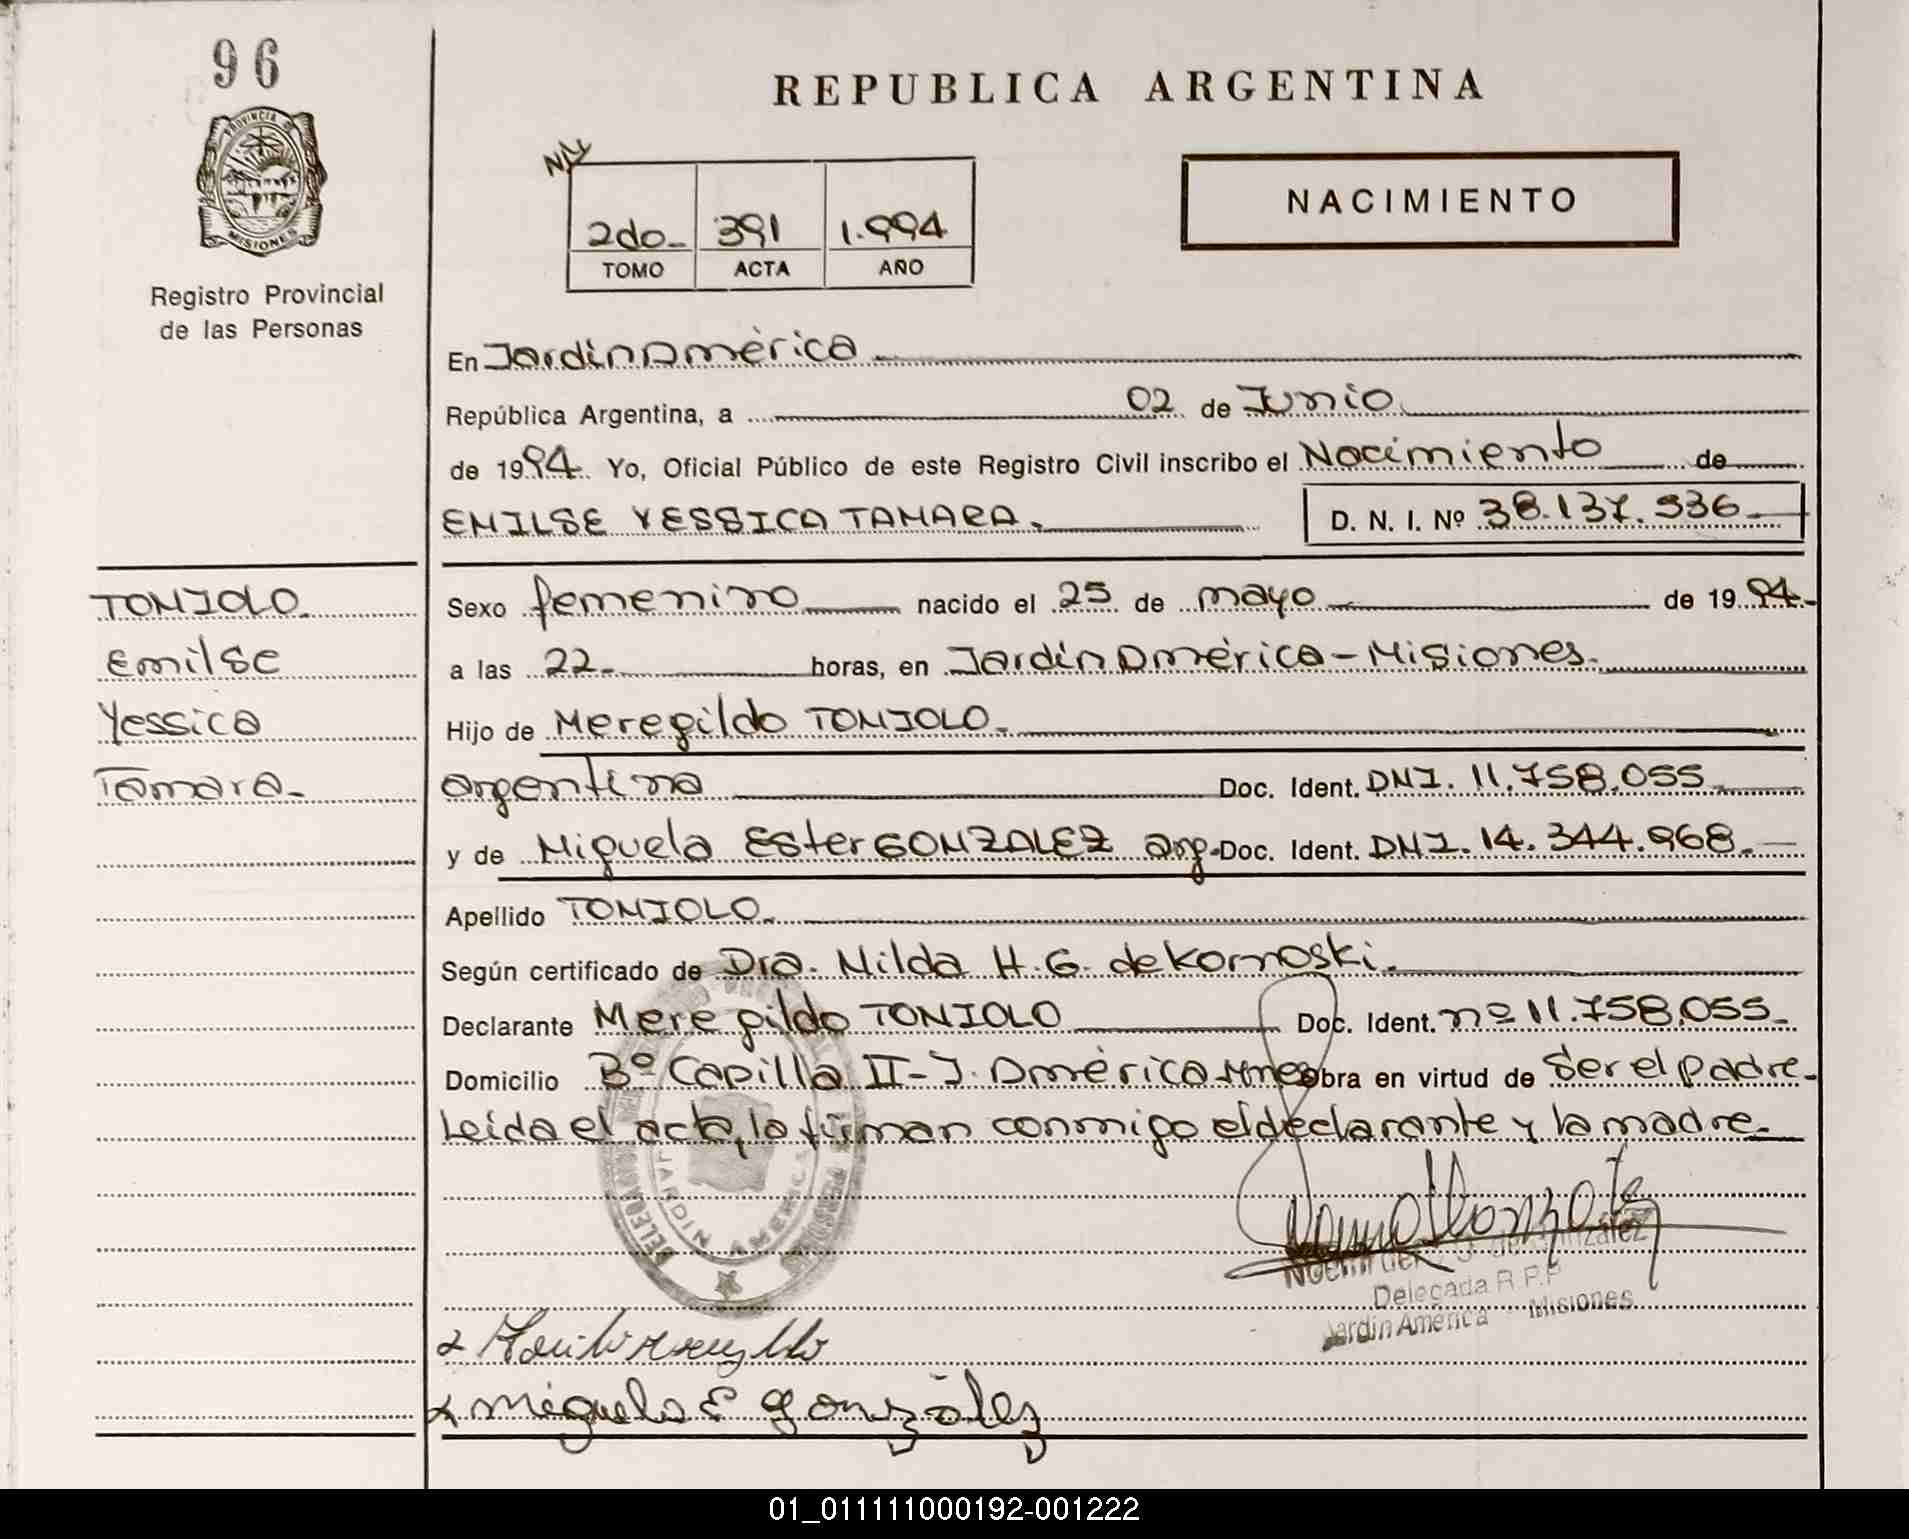 96
PROVINCIA DE
MISIONES
Registro Provincial
de las Personas
REPUBLICA ARGENTINA
NACIMIENTO
2do. 391 1.994
TOMO ACTA AÑO
En Jardín América
República Argentina, a 02 de Junio
de 1994. Yo, Oficial Público de este Registro Civil inscribo el Nacimiento de
EMILSE YESSICA TAMARA. D. N. I. Nº 38.137.936
TONIOLO
Emilse
Yessica
Tamara
Sexo femenino nacido el 25 de mayo de 1994
a las 22 horas, en Jardín América - Misiones.
Hijo de Meregildo TONIOLO
argentina Doc. Ident. DNI. 11.758.055
y de Miguela Ester GONZALEZ arg. Doc. Ident. DNI. 14.344.968
Apellido TONIOLO
Según certificado de Dra. Nilda H. G. de Kornoski.
Declarante Meregildo TONIOLO Doc. Ident. nº 11.758.055
Domicilio Bº Capilla II - J. América Mnes obra en virtud de Ser el padre
Leída el acta, la firman conmigo el declarante y la madre
JARDIN AMERICA
González
Delegada R.P.P
Jardín América Misiones
Miguela E González
01_011111000192-001222